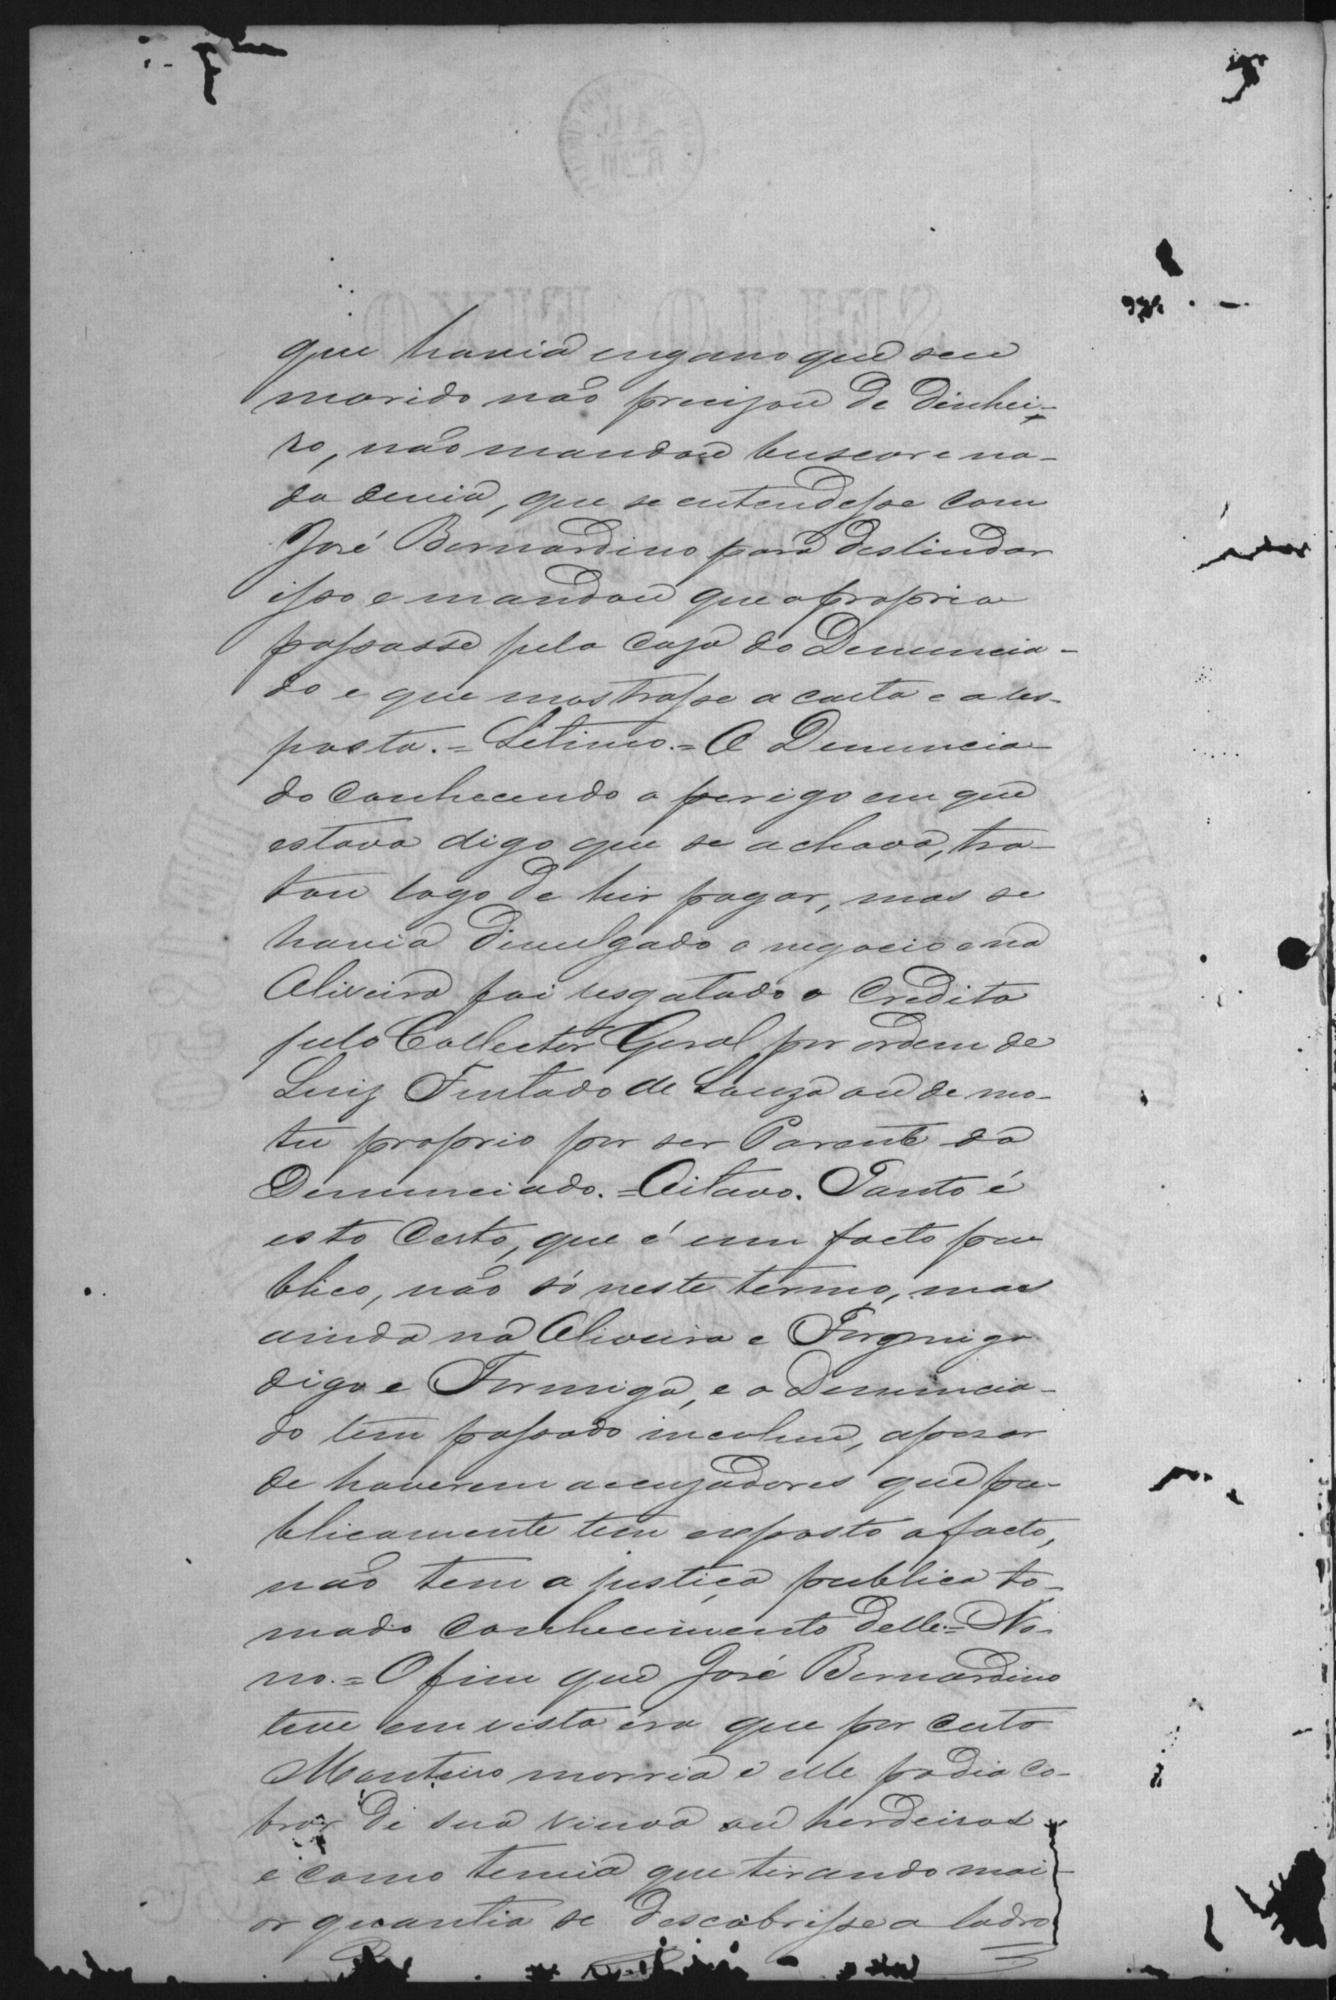 que havia engano que seu
marido não precisou de dinhei-
ro, não mandou buscar e na-
da devia, que se entendesse com
José Bernardino para deslindar
isso e mandou que o proprio
passasse pela casa do Denuncia-
do e que mostrasse a carta e a res-
posta. = Setimo. = O Denuncia
do conhecendo o perigo em que
estava digo que se achava, tra-
tou logo de hir pagar, mas se
havia divulgado o negocio e na
Oliveira foi resgatado o credito
pelo Collector Geral por ordem de
Luiz Furtado de Souza ou de mo-
tu proprio por ser Parente do
Denunciado. = Oitavo. Tanto é
isto certo, que é um facto pu
blico, não só neste termo, mas
ainda na Oliveira e Forgmiga
digo e Formiga, e o Denuncia-
do tem passado incolume, apesar
de haverem accusadores que pu-
blicamente tem exposto o facto,
não tem a justiça publica to-
mado conhecimento delle. = No-
no. = O fim que José Bernardino
teve em vista éra que por certo
Monteiro morria e elle podia co-
brar de sua viuva ou herdeiros
e como temia que tirando mai-
or quantia se descobrisse a ladro
SELLO FIXO